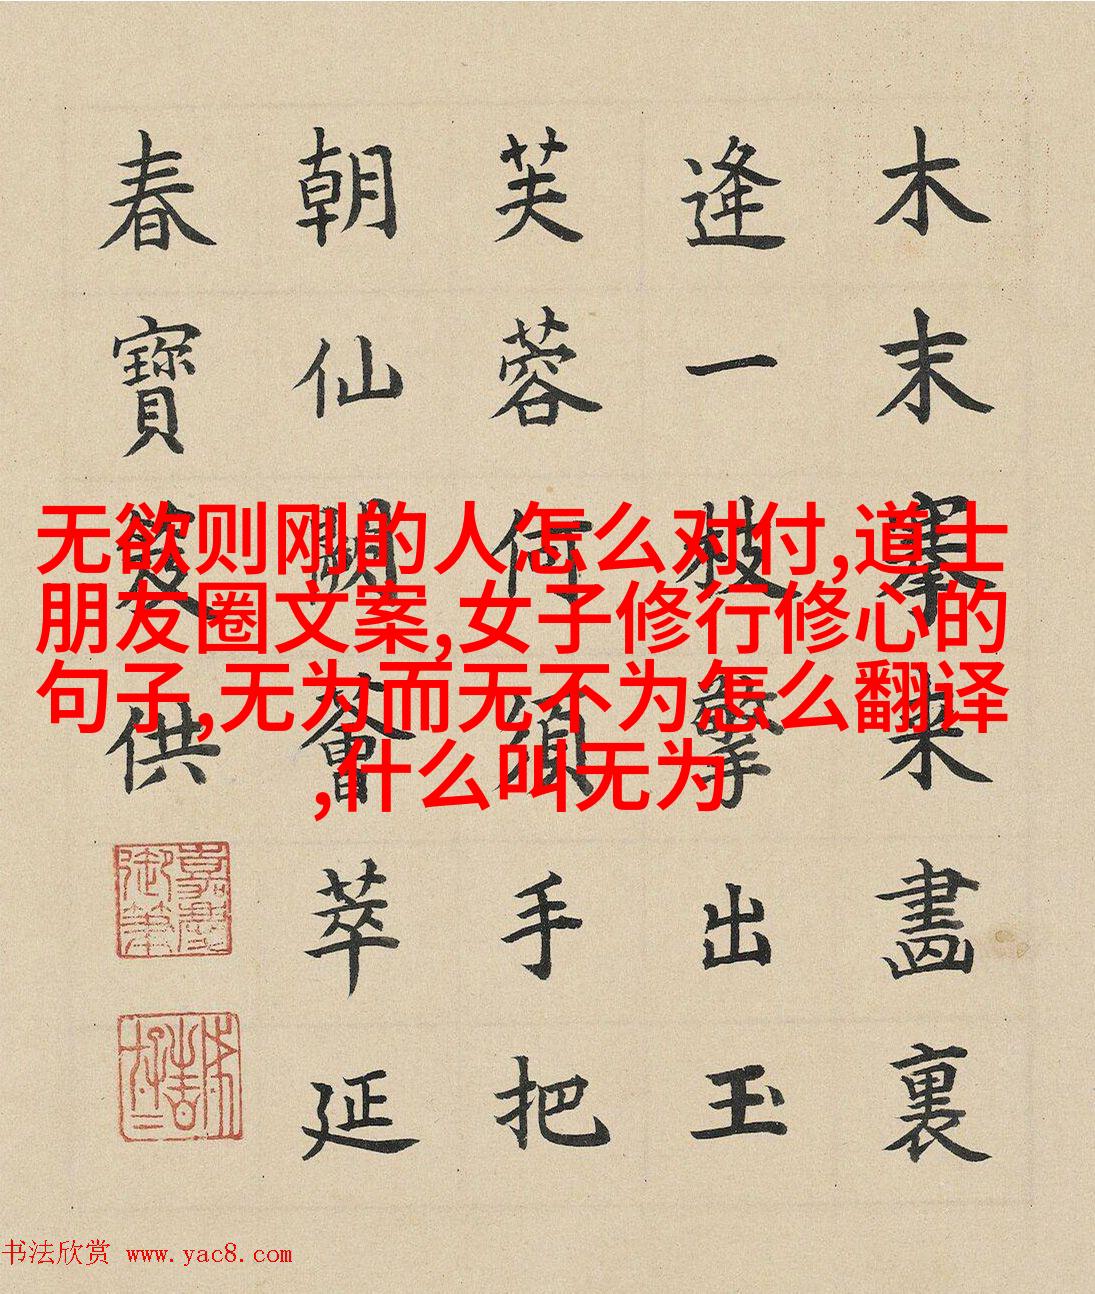 木末来畫裏
逢一枝擎出玉
芙蓉何須手把
朝仙闕薈萃延
春寶笈供
嘉慶
御筆
无欲则刚的人怎么对付,道士
朋友圈文案,女子修行修心的
句子,无为而无不为怎么翻译
,什么叫无为
书法欣赏 www.yac8.com